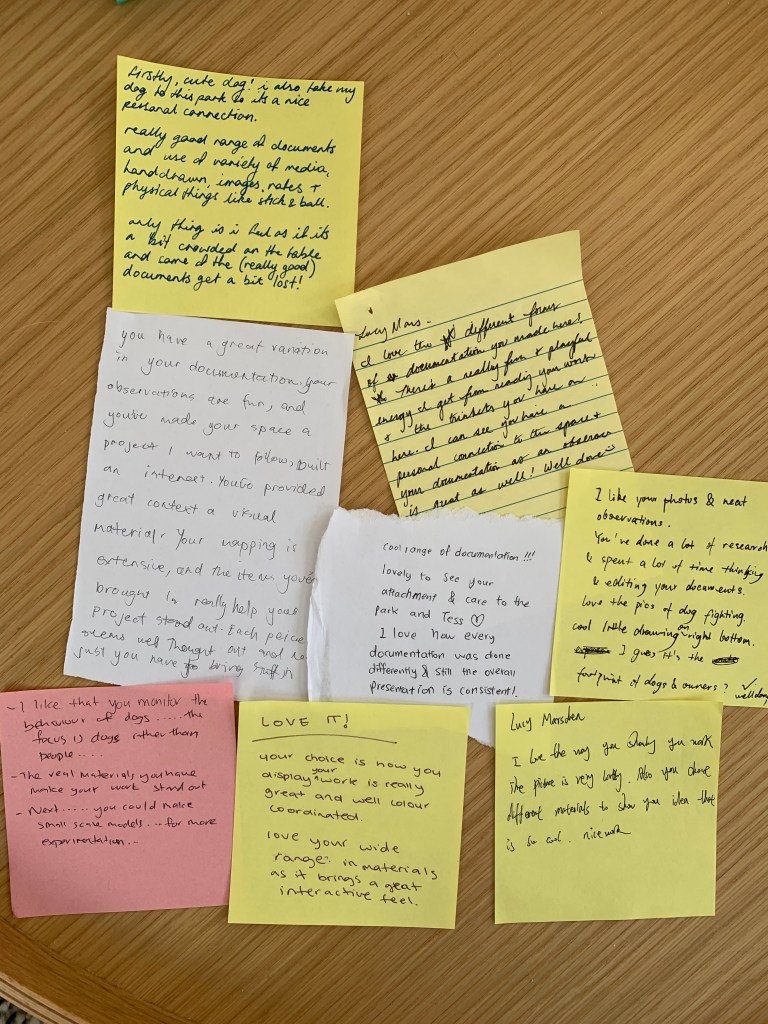 firstly, cute dog! i also take my
dog to this park so its a nice
personal connection.
really good range of documents
and use of variety of media,
handdrawn, images, notes +
physical things like stick & ball.
only thing is i feel as if its
a bit crowded on the table
and some of the (really good)
documents get a bit lost!
Lucy Mars.
I love the different forms
of documentation you made here!
There's a really fun & playful
energy I get from reading you work
& the trinkets you have on
here. I can see you have a
personal connection to the space &
your documentation as an observer
is great as well! Well done
you have a great variation
in your documentation. your
observations are fun, and
you've made your space a
project I want to follow, built
an interest. You've provided
great context a visual
material. Your mapping is
extensive, and the items you've
brought in really help your
project stand out. Each peice
seems well thought out and
just you have to bring stuff in
cool range of documentation !!!
lovely to see your
attachment & care to the
park and Tess ♡
I love how every
documentation was done
differently & still the overall
presentation is consistent!
I like your photos & neat
observations.
You've done a lot of research
& spent a lot of time thinking
& editing your documents.
Love the pics of dog fighting.
cool little drawing on right bottom.
I guess it's the
footprint of dogs & owners? ✓
well done
- I like that you monitor the
behaviour of dogs ..... the
focus is dogs rather than
people ....
- The real materials you have
make your work stand out
- Next ..... you could make
small scale models ... for more
experimentation...
LOVE IT!
your choice is how you
display your work is really
great and well colour
coordinated.
love your wide
range: in materials
as it brings a great
interactive feel.
Lucy Marsden
I love the way you sharing you work
the picture is very lovely. Also you chose
different materials to show you idea that
is so cool. nice work